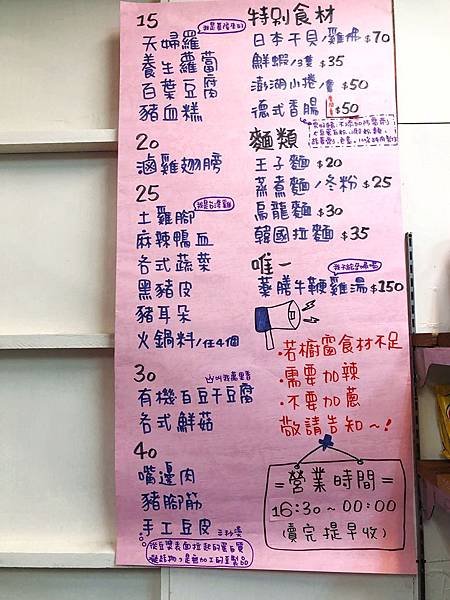 15
天婦羅
養生蘿蔔
百葉豆腐
豬血糕
20
滷雞翅膀
25
土雞腳
麻辣鴨血
各式蔬菜
黑豬皮
豬耳朵
火鍋料/任4個
30
有機百豆干豆腐
各式鮮菇
40
嘴邊肉
豬腳筋
手工豆皮
特別食材
日本干貝/雞佛 $70
鮮蝦/3隻 $35
澎湖小捲/隻 $50
德式香腸 $50
麵類
王子麵 $20
蒸煮麵/冬粉 $25
烏龍麵 $30
韓國拉麵 $35
唯一
藥膳牛鞭雞湯 $150
•若櫥窗食材不足
•需要加辣
•不要加蔥
敬請告知~!
=營業時間=
16:30~00:00
(賣完提早收)